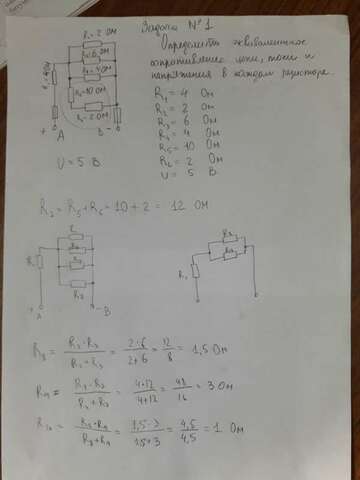 Задача №1
Определить эквивалентное
сопротивление цепи, токи и
напряжения в каждом резисторе.
R₁ = 4 Ом
R₂ = 2 Ом
R₃ = 6 Ом
R₄ = 4 Ом
R₅ = 10 Ом
R₆ = 2 Ом
U = 5 В
R₂ = 2 Ом
R₃ = 6 Ом
R₄ = 4 Ом
R₅ = 10 Ом
R₆ = 2 Ом
+ A B -
U = 5 В
R₇ = R₅ + R₆ = 10 + 2 = 12 Ом
+ A - B
R₈ = R₂ · R₃ / R₂ + R₃ = 2 · 6 / 2 + 6 = 12 / 8 = 1,5 Ом
R₉ = R₄ · R₇ / R₄ + R₇ = 4 · 12 / 4 + 12 = 48 / 16 = 3 Ом
R₁₀ = R₈ · R₉ / R₈ + R₉ = 1,5 · 3 / 1,5 + 3 = 4,5 / 4,5 = 1 Ом